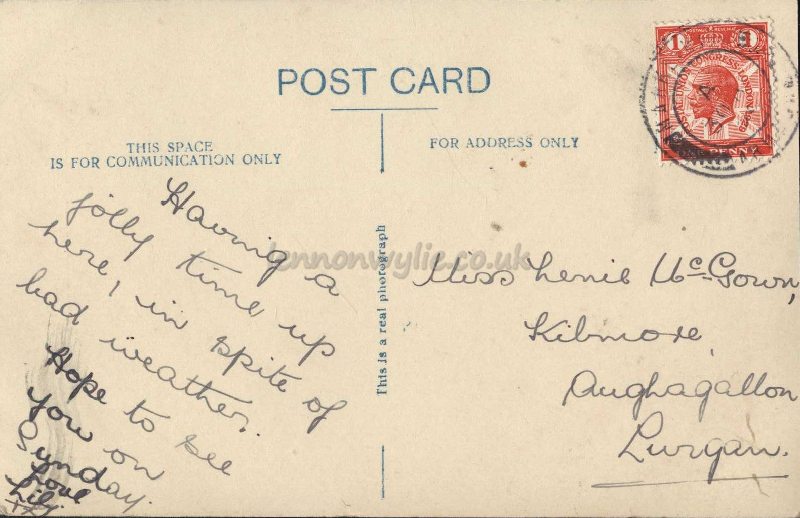 POST CARD
THIS SPACE
IS FOR COMMUNICATION ONLY
FOR ADDRESS ONLY
1 POSTAGE REVENUE 1
POSTAL UNION CONGRESS LONDON 1929
PENNY
Having a
jolly time up
here, in spite of
bad weather.
Hope to see
you on
Sunday.
Love
Lily
This is a real photograph
lennonwylie.co.uk
Miss Lenie McGown,
Kilmore,
Aughagallon
Lurgan.